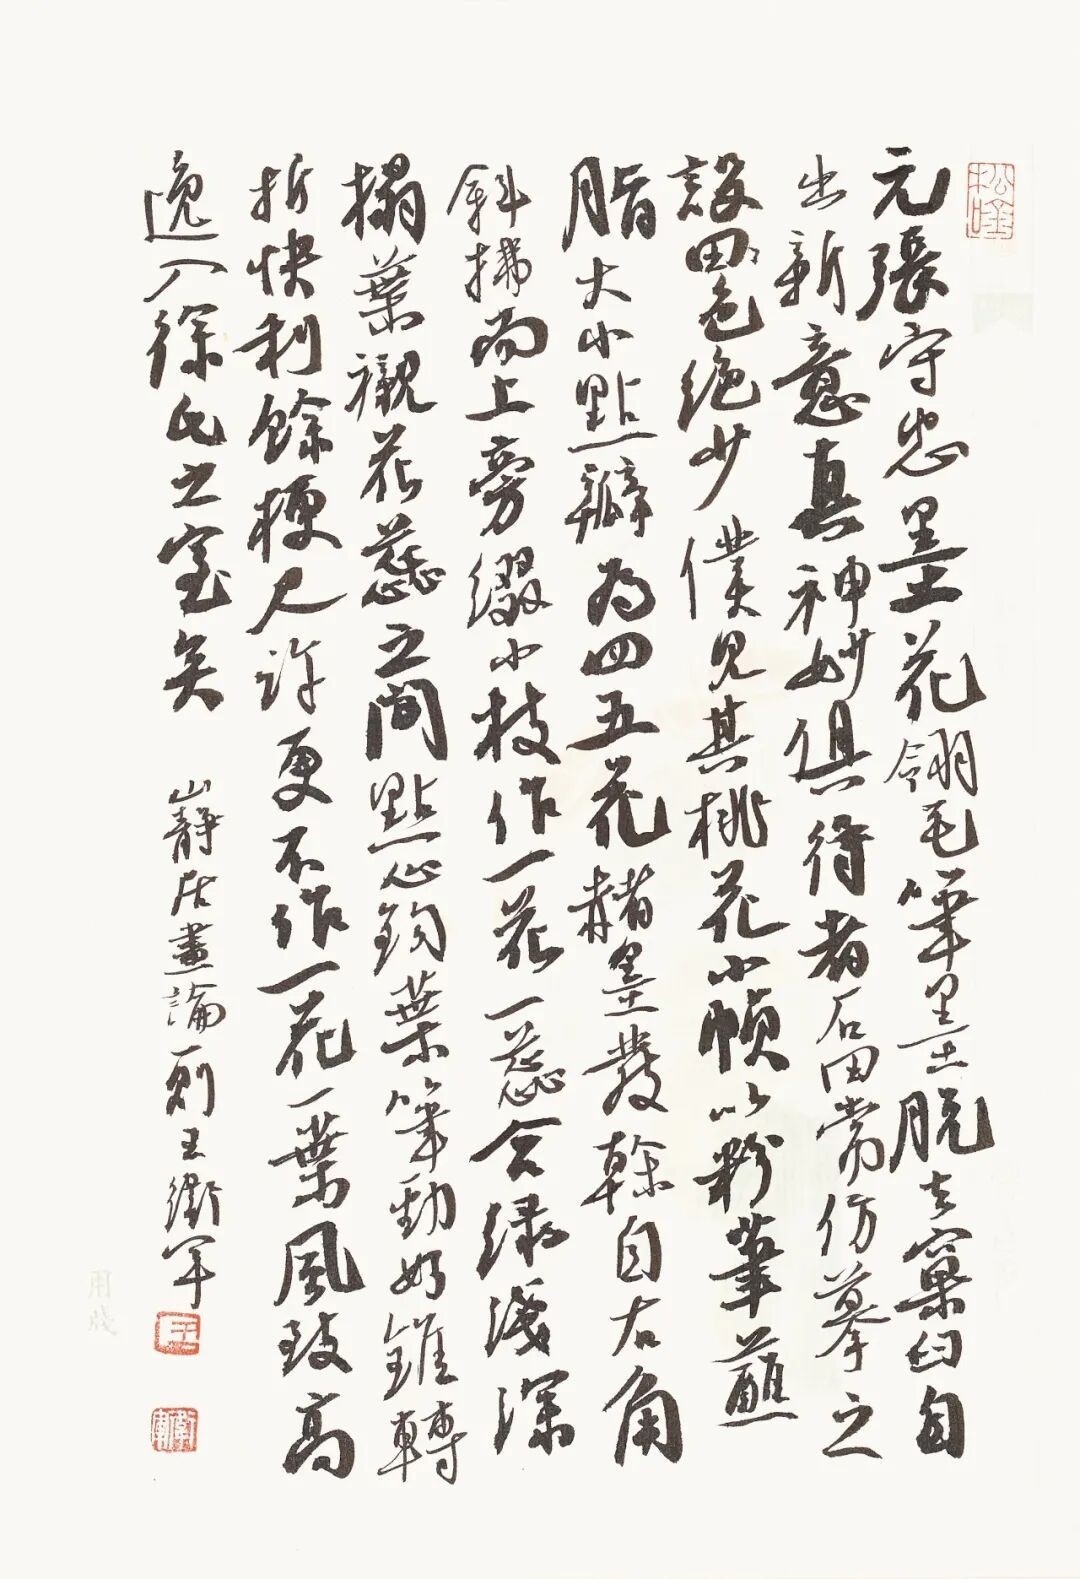 元張守忠墨花翎毛筆墨脫去窠臼自
出新意真神妙俱得者石田常仿摹之
設田色絕少僕見其桃花小幀以粉筆蘸
脂大小點瓣為四五花赭墨發榦自右角
斜拂而上旁綴小枝作一花一蕊合綠淺深
搨葉襯花蕊之間點心鉤葉筆勁如錐轉
折快利餘梗尺許更不作一花一葉風致高
逸入徐氏之室矣
山靜居畫論一則王衛軍
王
衛軍
用箋